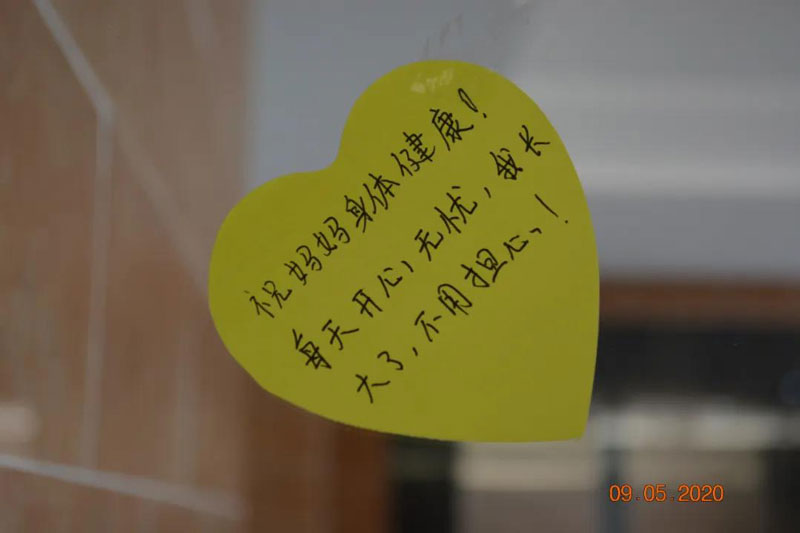 祝妈妈身体健康!
每天开心,无忧,我长
大了,不用担心!
09.05.2020